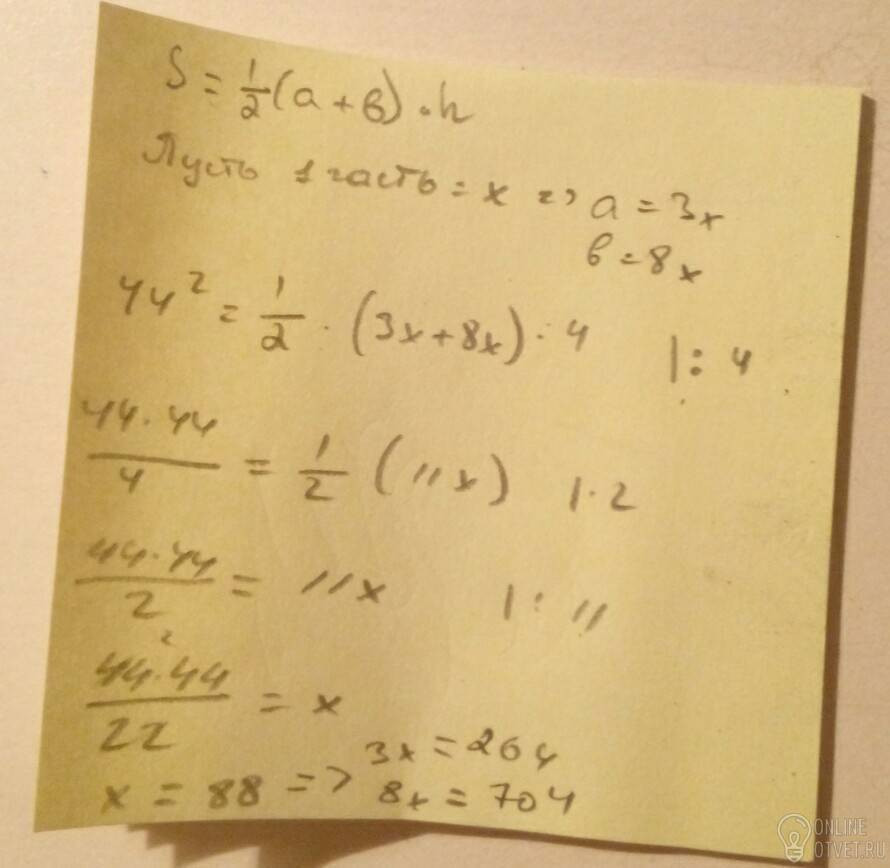 S = 1/2 (a + в) · h
Пусть 1 часть = x => a = 3x
в = 8x
44² = 1/2 · (3x + 8x) · 4 | : 4
44 · 44 / 4 = 1/2 (11x) | · 2
44 · 44 / 2 = 11x | : 11
44 ·² 44 / 22 = x
3x = 264
x = 88 => 8x = 704
ONLINE
OTVET.RU